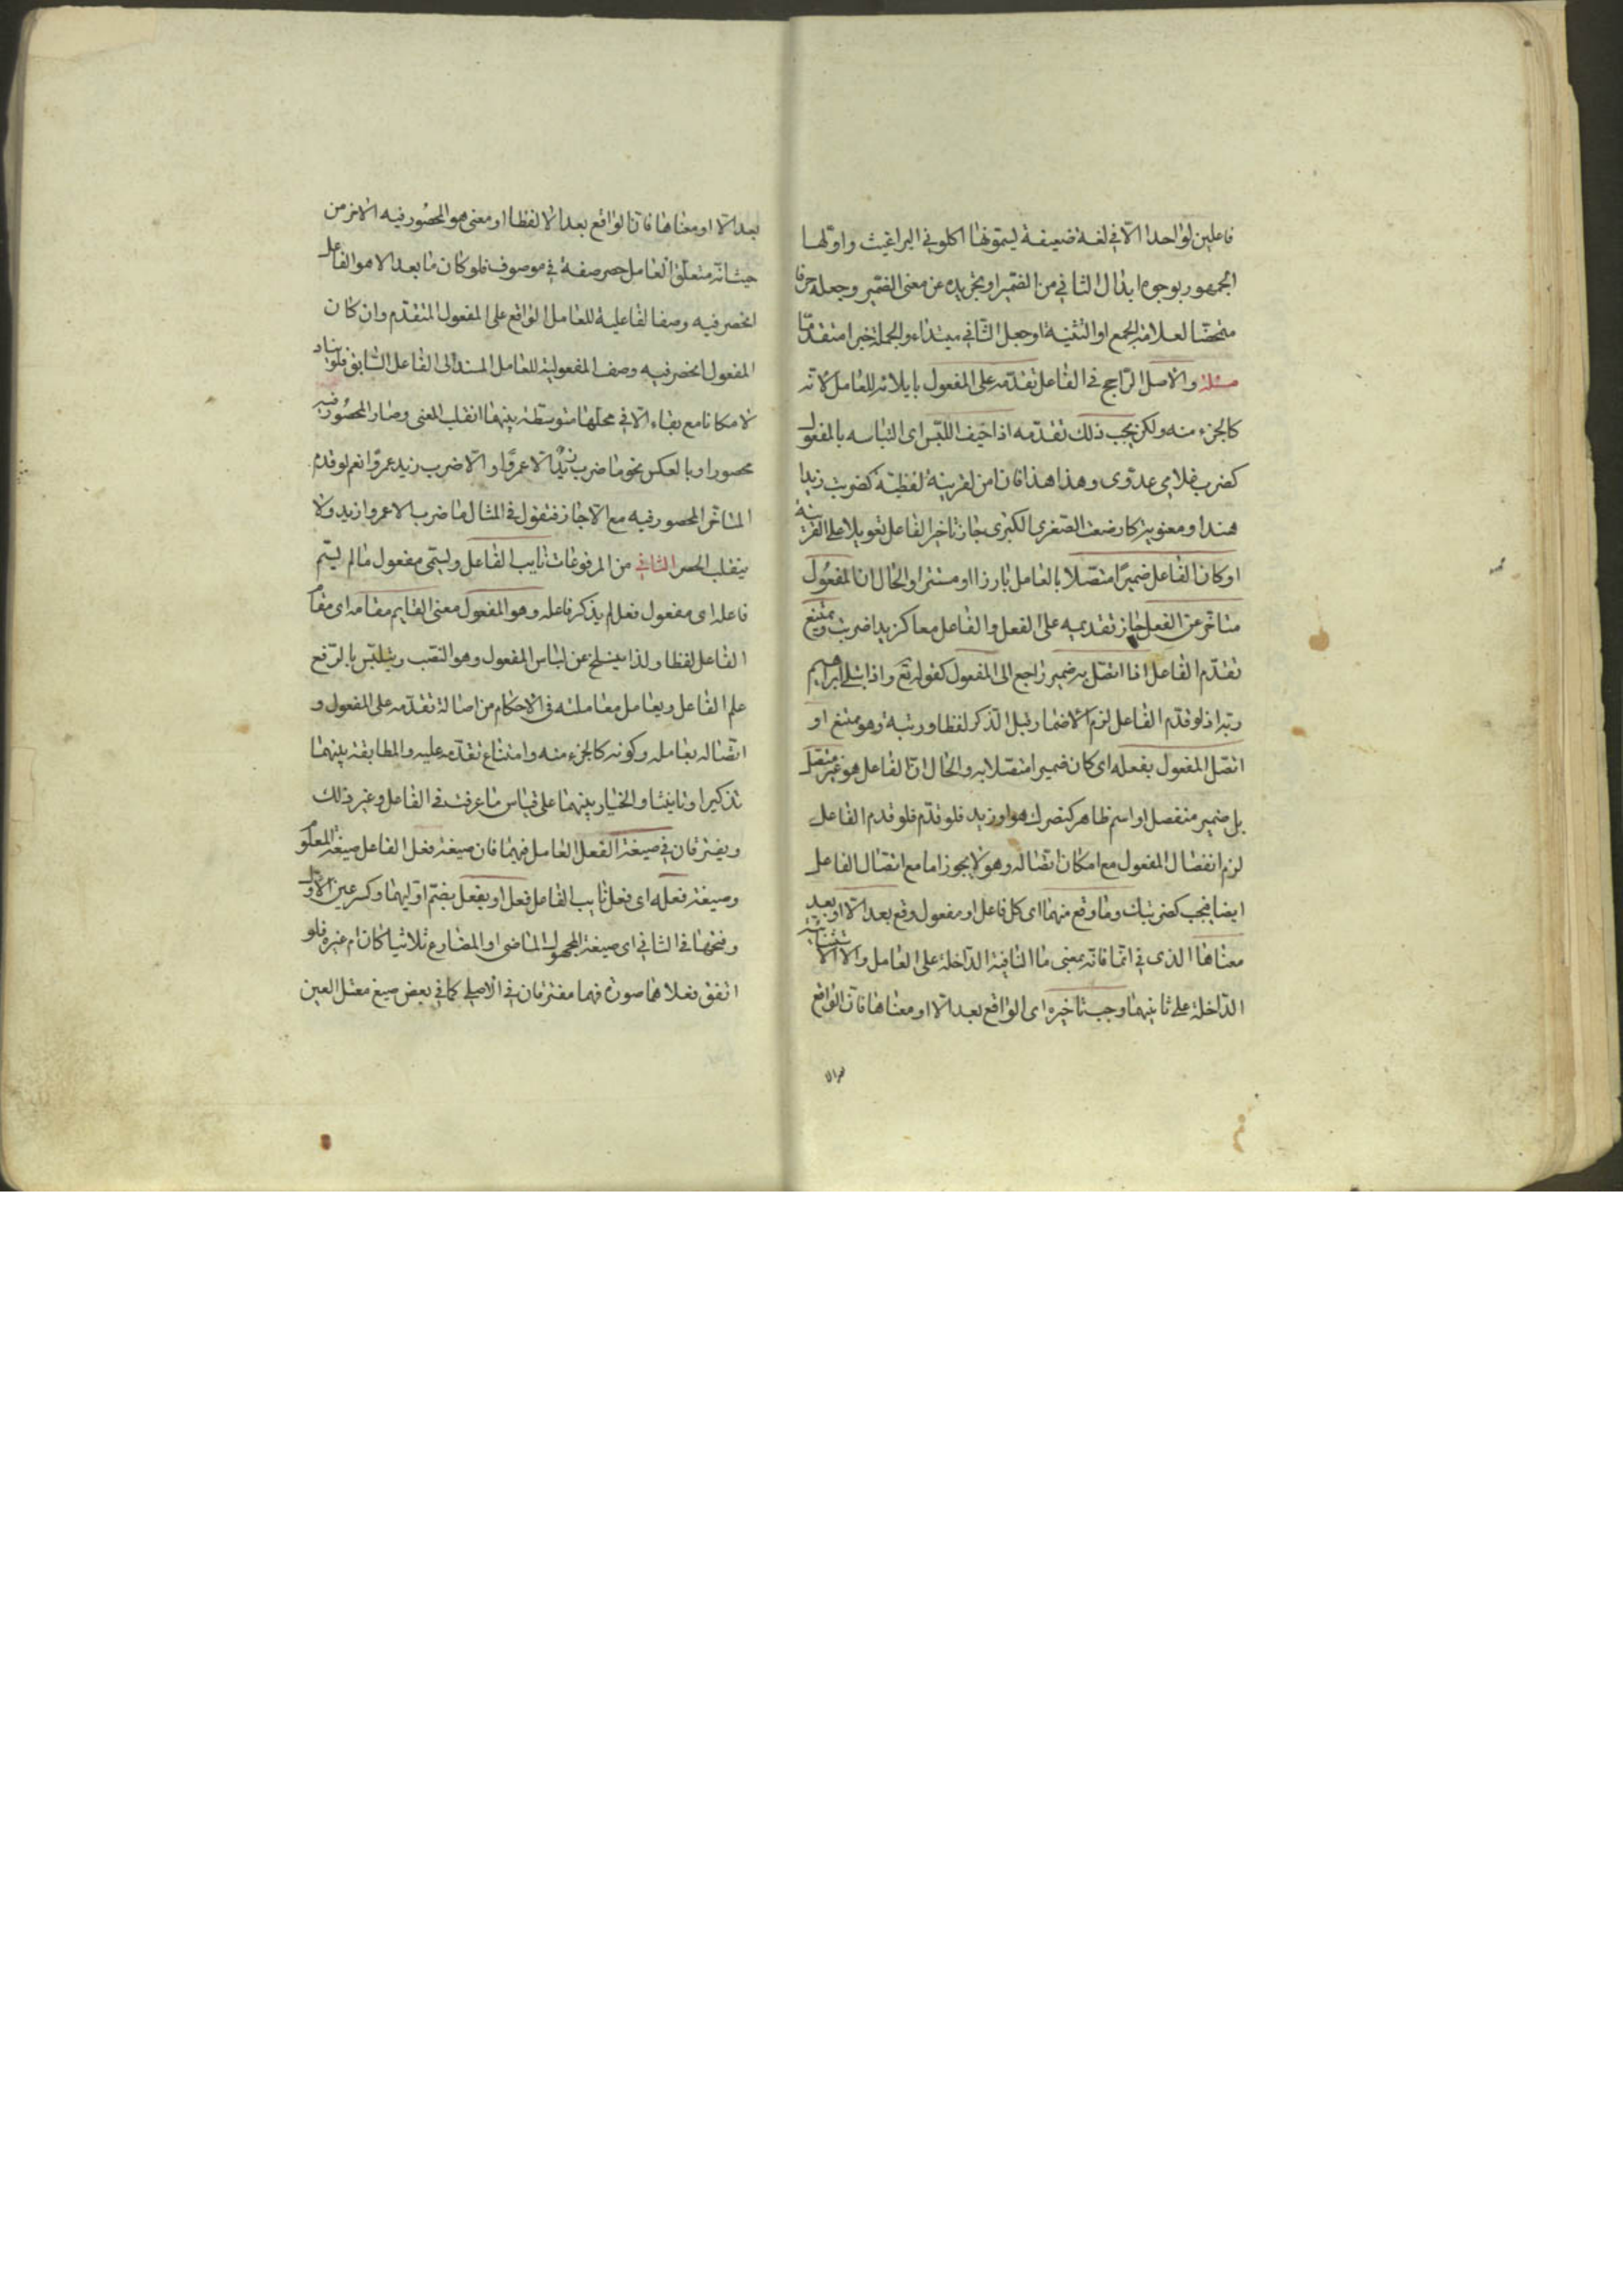 فاعلين لواحد الّا في لغة ضعيفة يسمّونها اكلوني البراغيث واوّلها
الجمهور بوجوه ابدال الثاني من الضمير او تجريده عن معنى الضمير وجعله حرفا
متمحضا لعلامة الجمع او التثنية او جعل الثّاني مبتداء والجملة خبرا متقدّما
مسئلة والاصل الرّاجح في الفاعل تقدّمه على المفعول بايلائه للعامل لانّه
كالجزء منه ولكن يجب ذلك تقدّمه اذا خيف اللّبس اى التباسه بالمفعول
كضرب غلامى عدوّى وهذا هذا فان امن لقرينة لفظيّة كضربت زيدا
هندا ومعنوية كارضعت الصّغرى الكبرى جاز تاخير الفاعل تعويلا على القرينة
او كان الفاعل ضميرًا متصلا بالعامل بارزا او مستترا والحال ان المفعول
متاخّر عن الفعل جاز تقديمه على الفعل والفاعل معا كزيدا ضربت ويمتنع
تقدّم الفاعل اذا اتصل به ضمير راجع الى المفعول كقوله تع واذ ابتلى ابراهيم
ربّه اذ لو قدّم الفاعل لزم الاضمار قبل الذكر لفظا ورتبة وهو ممتنع او
اتصل المفعول بفعله اى كان ضميرا متصلا به والحال انّ الفاعل هو غير متصل
بل ضمير منفصل او اسم ظاهر كنصرك هو او زيد فلو قدّم فلو قدم الفاعل
لزم انفصال المفعول مع امكان اتصاله وهو لا يجوز اما مع اتصال الفاعل
ايضا فيجب كضربتك وما وقع منهما اى كل فاعل او مفعول وقع بعد الّا او بعد
معناها الذى في انّما فانّه بمعنى ما النافية الدّاخلة على العامل والا الاستثنائية
الدّاخلة على ثانيهما وجب تاخيره اى الواقع بعد الّا او معناها فانّ الواقع
بعد الّا او معناها فانّ الواقع بعد الا لفظا او معنى هو المحصور فيه الاخر من
حيث انّه متعلّق العامل حصر صفة في موصوف فلو كان ما بعد الا هو الفاعل
انحصر فيه وصف الفاعلية للعامل الواقع على المفعول المتقدّم وان كان
المفعول انحصر فيه وصف المفعولية للعامل المسند الى الفاعل السّابق فلو
لا مكانا مع بقاء الّا في محلّها متوسطة بينهما انقلب المعنى وصار المحصور فيه
محصورا وبالعكس نحو ما ضرب زيدٌ الّا عمروًا والّا ضرب زيد عمروًا نعم لو قدم
المتاخّر المحصور فيه مع الّا جاز فتقول في المثال ما ضرب الا عمروا زيد ولا
ينقلب الحصر الثّاني من المرفوعات نايب الفاعل ويسمّى مفعول ما لم يسمّ
فاعله اى مفعول فعل لم يذكر فاعله وهو المفعول معنى القايم مقامه اى مقام
الفاعل لفظا ولذا ينسلخ عن لباس المفعول وهو النصب ويتلبّس بالرّفع
علم الفاعل ويعامل معاملته في الاحكام من اصالة تقدّمه على المفعول و
اتصاله بعامله وكونه كالجزء منه وامتناع تقدّمه عليه والمطابقة بينهما
تذكيرا وتانيثا والخيار بينهما على قياس ما عرفت في الفاعل وغير ذلك
ويفترقان في صيغة الفعل العامل فيهما فان صيغة فعل الفاعل صيغة المعلوم
وصيغة فعله اى فعل نايب الفاعل فعل او يفعل بضمّ اوّليهما وكسر عين الاوّل
وفتحها في الثاني اى صيغة المجهول الماضى او المضارع ثلاثيا كان ام غيره فلو
اتفق فعلاهما صورة فهما مفترقان في الاصل كما في بعض صيغ معتل العين